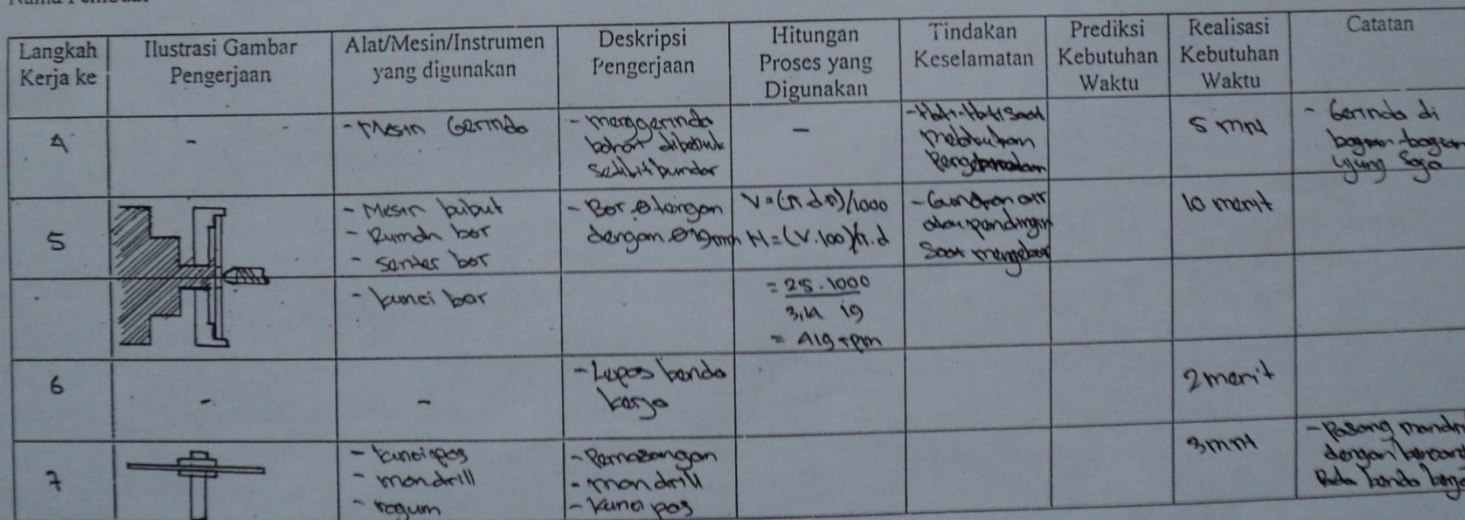 Langkah Kerja ke
Ilustrasi Gambar Pengerjaan
Alat/Mesin/Instrumen yang digunakan
Deskripsi Pengerjaan
Hitungan Proses yang Digunakan
Tindakan Keselamatan
Prediksi Kebutuhan Waktu
Realisasi Kebutuhan Waktu
Catatan
4
-
- Mesin Gerinda
- menggerinda
bahan dibentuk
sedikit bundar
-
- Hati-Hati Saat
Melakukan
5 mnt
- Gerinda di
bagian-bagian
ujung Saja
5
- Mesin bubut
- Rumah bor
- senter bor
- kunci bor
- Bor
dengan Ø19mm
V = (π.d.n)/1000
N = (V.100)/π.d
= 25.1000
3,14 19
= 419 rpm
- Gunakan air
atau pendingin
Saat mengebor
10 menit
6
-
-
- Lepas benda
kerja
2 menit
7
- kunci pas
- mandrill
- ragum
- Pemasangan
- mandrill
- kunci pas
3 mnt
- Pasang
dengan
Pada benda kerja